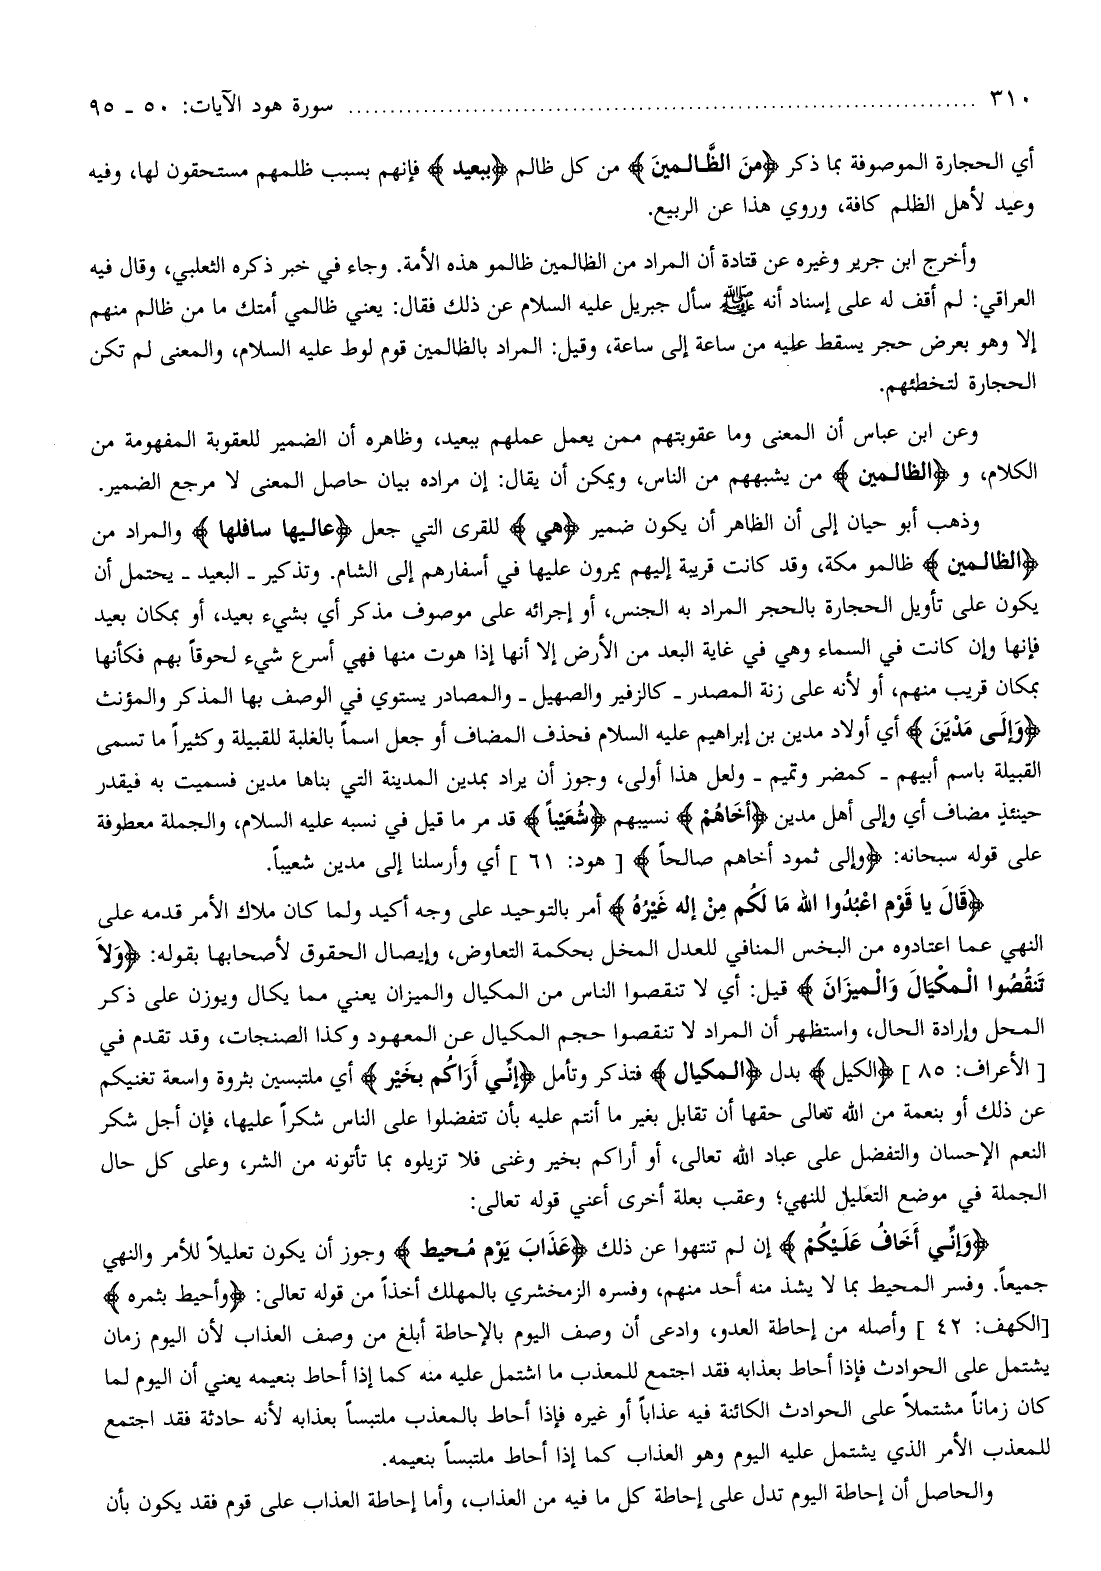 ٣١٠ ........ سورة هود الآيات: ٥٠ ـ ٩٥
أي الحجارة الموصوفة بما ذكر ﴿منَ الظَّـالـمينَ﴾ من كل ظالم ﴿ببعيد﴾ فإنهم بسبب ظلمهم مستحقون لها، وفيه
وعيد لأهل الظلم كافة، وروي هذا عن الربيع.
وأخرج ابن جرير وغيره عن قتادة أن المراد من الظالمين ظالمو هذه الأمة. وجاء في خبر ذكره الثعلبي، وقال فيه
العراقي: لم أقف له على إسناد أنه ﷺ سأل جبريل عليه السلام عن ذلك فقال: يعني ظالمي أمتك ما من ظالم منهم
إلا وهو بعرض حجر يسقط عليه من ساعة إلى ساعة، وقيل: المراد بالظالمين قوم لوط عليه السلام، والمعنى لم تكن
الحجارة لتخطئهم.
وعن ابن عباس أن المعنى وما عقوبتهم ممن يعمل عملهم ببعيد، وظاهره أن الضمير للعقوبة المفهومة من
الكلام، و ﴿الظالـمين﴾ من يشبههم من الناس، ويمكن أن يقال: إن مراده بيان حاصل المعنى لا مرجع الضمير.
وذهب أبو حيان إلى أن الظاهر أن يكون ضمير ﴿هي﴾ للقرى التي جعل ﴿عاليها سافلها﴾ والمراد من
﴿الظالـمين﴾ ظالمو مكة، وقد كانت قريبة إليهم يمرون عليها في أسفارهم إلى الشام. وتذكير ـ البعيد ـ يحتمل أن
يكون على تأويل الحجارة بالحجر المراد به الجنس، أو إجرائه على موصوف مذكر أي بشيء بعيد، أو بمكان بعيد
فإنها وإن كانت في السماء وهي في غاية البعد من الأرض إلا أنها إذا هوت منها فهي أسرع شيء لحوقاً بهم فكأنها
بمكان قريب منهم، أو لأنه على زنة المصدر ـ كالزفير والصهيل ـ والمصادر يستوي في الوصف بها المذكر والمؤنث
﴿وَإِلَى مَدْيَنَ﴾ أي أولاد مدين بن إبراهيم عليه السلام فحذف المضاف أو جعل اسماً بالغلبة للقبيلة وكثيراً ما تسمى
القبيلة باسم أبيهم ـ كمضر وتميم ـ ولعل هذا أولى، وجوز أن يراد بمدين المدينة التي بناها مدين فسميت به فيقدر
حينئذٍ مضاف أي وإلى أهل مدين ﴿أخَاهُمْ﴾ نسيبهم ﴿شُعَيْباً﴾ قد مر ما قيل في نسبه عليه السلام، والجملة معطوفة
على قوله سبحانه: ﴿وإلى ثمود أخاهم صالحاً﴾ [ هود: ٦١ ] أي وأرسلنا إلى مدين شعيباً.
﴿قَالَ يا قَوْم اعْبُدُوا الله مَا لَكُم مِنْ إله غَيْرُهُ﴾ أمر بالتوحيد على وجه أكيد ولما كان ملاك الأمر قدمه على
النهي عما اعتادوه من البخس المنافي للعدل المخل بحكمة التعاوض، وإيصال الحقوق لأصحابها بقوله: ﴿وَلاَ
تَنقُصُوا الْـمكْيَالَ وَالْـميزَانَ﴾ قيل: أي لا تنقصوا الناس من المكيال والميزان يعني مما يكال ويوزن على ذكر
المحل وإرادة الحال، واستظهر أن المراد لا تنقصوا حجم المكيال عن المعهود وكذا الصنجات، وقد تقدم في
[ الأعراف: ٨٥ ] ﴿الكيل﴾ بدل ﴿الـمكيال﴾ فتذكر وتأمل ﴿إنِّي أَرَاكُم بخَيْر﴾ أي ملتبسين بثروة واسعة تغنيكم
عن ذلك أو بنعمة من الله تعالى حقها أن تقابل بغير ما أنتم عليه بأن تتفضلوا على الناس شكراً عليها، فإن أجل شكر
النعم الإحسان والتفضل على عباد الله تعالى، أو أراكم بخير وغنى فلا تزيلوه بما تأتونه من الشر، وعلى كل حال
الجملة في موضع التعليل للنهي؛ وعقب بعلة أخرى أعني قوله تعالى:
﴿وَإنِّي أَخَافُ عَلَيْكُمْ﴾ إن لم تنتهوا عن ذلك ﴿عَذَابَ يَوْم مُـحيط﴾ وجوز أن يكون تعليلاً للأمر والنهي
جميعاً. وفسر المحيط بما لا يشذ منه أحد منهم، وفسره الزمخشري بالمهلك أخذاً من قوله تعالى: ﴿وأحيط بثمره﴾
[الكهف: ٤٢ ] وأصله من إحاطة العدو، وادعى أن وصف اليوم بالإحاطة أبلغ من وصف العذاب لأن اليوم زمان
يشتمل على الحوادث فإذا أحاط بعذابه فقد اجتمع للمعذب ما اشتمل عليه منه كما إذا أحاط بنعيمه يعني أن اليوم لما
كان زماناً مشتملاً على الحوادث الكائنة فيه عذاباً أو غيره فإذا أحاط بالمعذب ملتبساً بعذابه لأنه حادثة فقد اجتمع
للمعذب الأمر الذي يشتمل عليه اليوم وهو العذاب كما إذا أحاط ملتبساً بنعيمه.
والحاصل أن إحاطة اليوم تدل على إحاطة كل ما فيه من العذاب، وأما إحاطة العذاب على قوم فقد يكون بأن